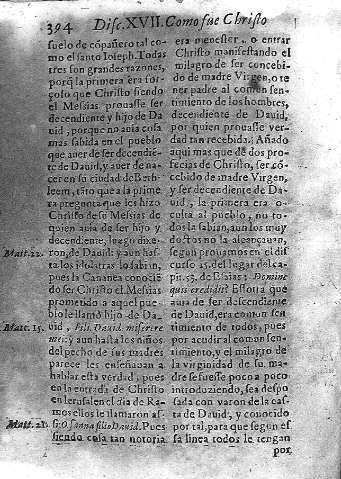 394 Disc. XVII. Como fue Christo
suelo de cõpañero tal co-
mo el santo Ioseph. Todas
tres son grandes razones,
porq̃ la primera era for-
çoso que Christo siendo
el Messias prouasse ser
decendiente y hijo de Da
uid, porque no auia cosa
mas sabida en el pueblo
que auer de ser decendiẽ-
te de Dauid, y auer de na-
cer en su ciudad de Beth-
leem, tãto que a la prime
ra pregunta que les hizo
Christo de su Messias de
quien auia de ser hijo y
decendiente, luego dixe-
Matt. 22. ron, de Dauid: y aun has-
ta los idolatras lo sabiã,
pues la Cananea conociẽ
do ser Christo el Messias
prometido a aquel pue-
blo le llamó hijo de Da-
Matt. 15. uid, Fili Dauid miserere
mei: y aun hasta los niños
del pecho de sus madres
parece les enseñauan a
hablar esta verdad, pues
en la entrada de Christo
en Ierusalen el dia de Ra-
mos ellos le llamaron as-
Matt. 21. si: Osanna filio Dauid. Pues
siendo cosa tan notoria
era menester, o entrar
Christo manifestando el
milagro de ser concebi-
do de madre Virgen, o te
ner padre al comun sen-
timiento de los hombres,
decendiente de Dauid,
por quien prouasse ver-
dad tan recebida. Añado
aqui mas que de dos pro-
fecias de Christo, ser cõ-
cebido de madre Virgen,
y ser decendiente de Da-
uid, la primera era o-
culta al pueblo, no to-
dos la sabian, aun los muy
doctos no la alcançauan,
segun prouamos en el dis
curso 15. del lugar del ca-
pit. 53. de Esaias: Domine
quis credidit? Essotra que
auia de ser descendiente
de Dauid, era comun sen-
timiento de todos, pues
por acudir al comun sen-
timiento, y el milagro de
la virginidad de su ma-
dre se fuesse poco a poco
introduziendo, sea despo
sada con varon de la cas-
ta de Dauid, y conocido
por tal, para que segun es
sa linea todos le tengan
por